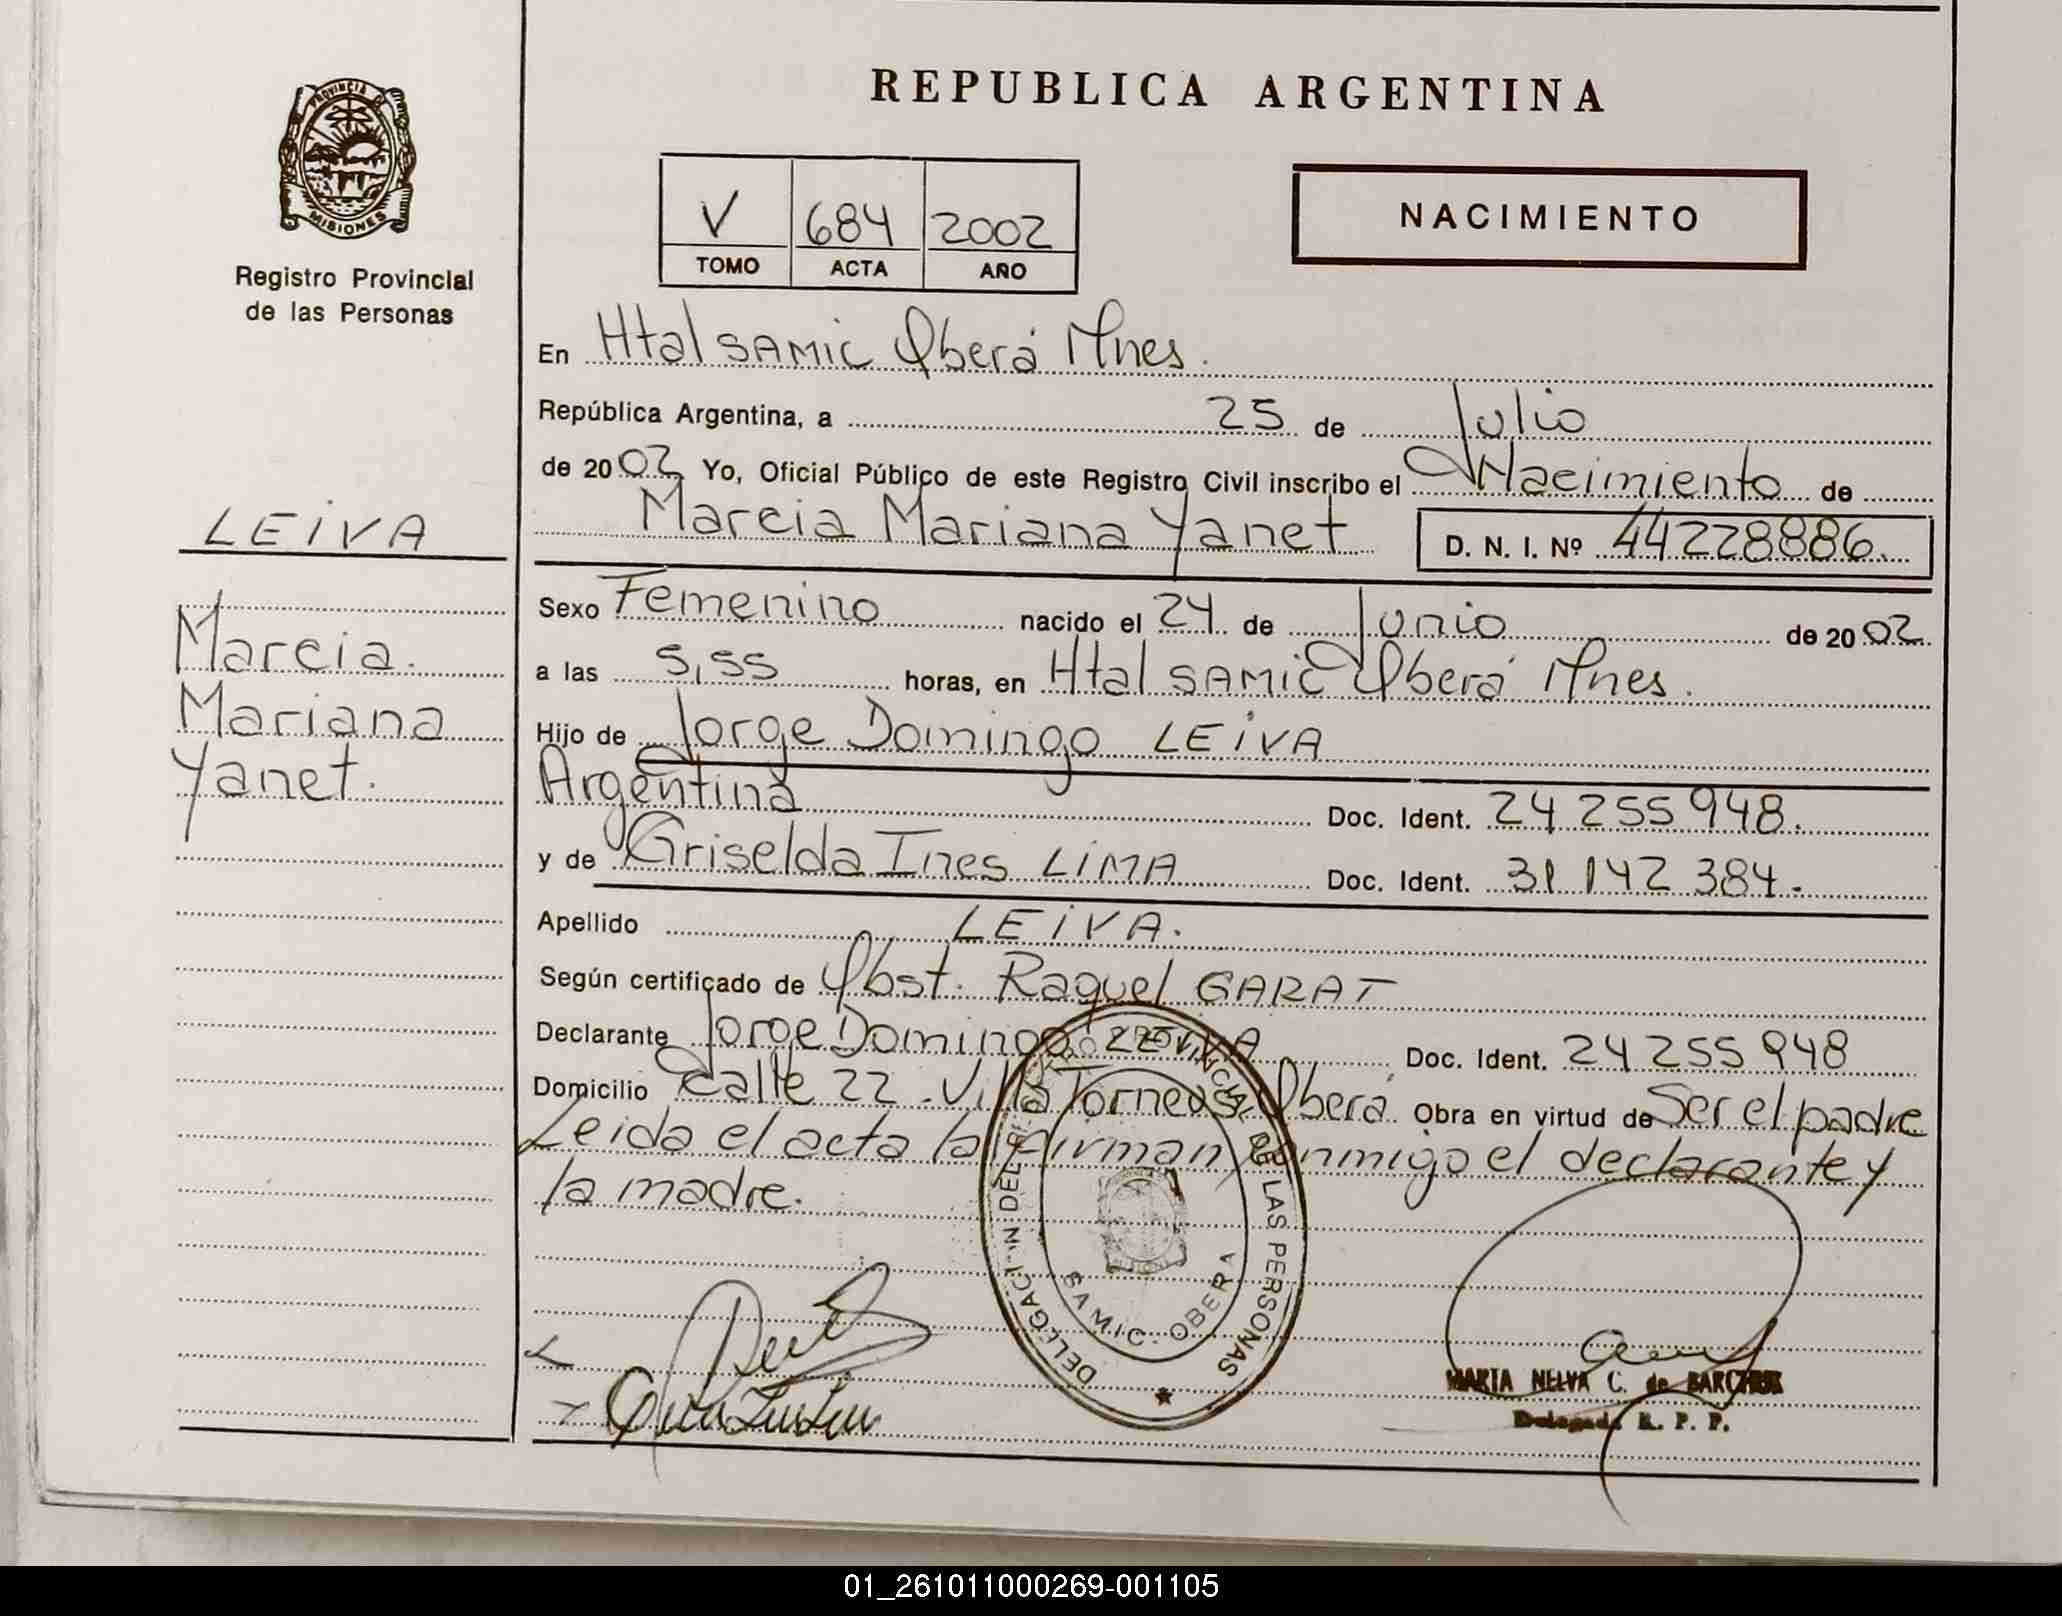 REPUBLICA ARGENTINA
PROVINCIA DE
MISIONES
Registro Provincial
de las Personas
V 684 2002
TOMO ACTA AÑO
NACIMIENTO
En Htal SAMIC Oberá Mnes.
República Argentina, a 25 de Julio
de 2002 Yo, Oficial Público de este Registro Civil inscribo el Nacimiento de
Marcia Mariana Yanet D. N. I. Nº 44228886.
LEIVA
Marcia.
Mariana
Yanet.
Sexo Femenino nacido el 24 de Junio de 2002
a las 5,55 horas, en Htal SAMIC Oberá Mnes.
Hijo de Jorge Domingo LEIVA
Argentina Doc. Ident. 24 255 948.
y de Griselda Ines LIMA Doc. Ident. 31 142 384.
Apellido LEIVA.
Según certificado de Obst. Raquel GARAT
Declarante Jorge Domingo LEIVA Doc. Ident. 24 255 948
Domicilio Calle 22 - Villa Torneus Oberá Obra en virtud de Ser el padre
Leida el acta la firman conmigo el declarante y
la madre.
DELEGACION DEL REGISTRO PROVINCIAL DE LAS PERSONAS
SAMIC - OBERA
MARTA NELVA C. de
Delegada R. P. P.
01_261011000269-001105